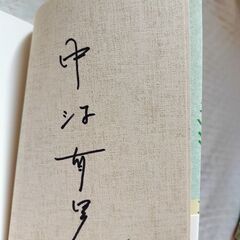 中江有里